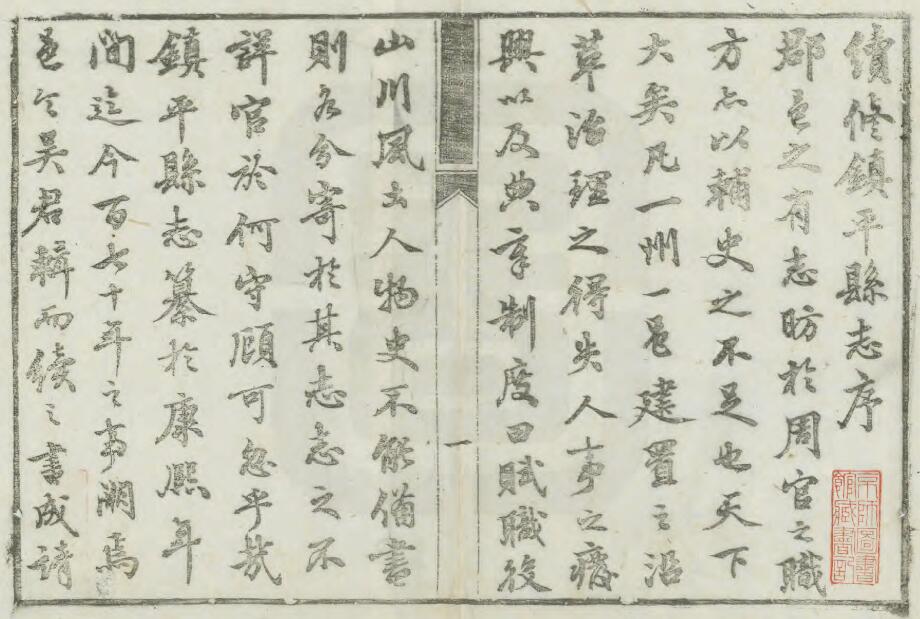 續修鎮平縣志序
郡邑之有志昉於周官之職
方亦以輔史之不足也天下
大矣凡一州一邑建置之沿
革治理之得失人事之癈
興以及典章制度田賦職役
山川風土人物史不能備書
則各分寄於其志志之不
詳官於何守顧可忽乎哉
鎮平縣志纂於康熙年
間迄今百七十年之事闕焉
邑令吳君輯而續之書成請
一
京師圖書
館藏書記